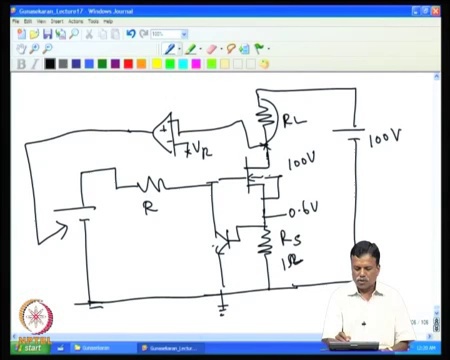 Gunasekaran_Lecture17 - Windows Journal
File Edit View Insert Actions Tools Help
100%
B I
RL
100V
VR
100V
R
0.6V
RS
1Ω
start
Gunasekaran
Gunasekaran_Lectu...